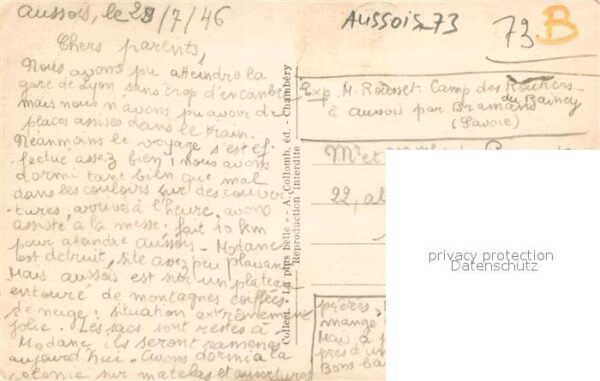 Aussois, le 28/7/46
AUSSOIS 73
73 B
Chers parents,
Nous avons pu atteindre la
gare de Lyon sans trop d'encombre
mais nous n'avons pu avoir de
places assises dans le train.
Néanmoins le voyage s'est ef-
fectué assez bien, nous avons
dormi tant bien que mal
dans les couloirs sur des couver-
tures, arrivés à l'heure, avons
assisté à la messe, fait 10 km
pour atteindre Aussois - Modane
est détruit, site avez peu plaisant
Mais aussois est sur un plateau
entouré de montagnes coiffées
de neige: situation extrêmement
jolie. Les sacs sont restés à
Modane, ils seront ramenés
aujourd'hui. Avons dormi à la
colonie sur matelas et couvertures
Collect. « La plus belle » - A. Collomb, éd. - Chambéry
Reproduction interdite
Exp. M. Rousset. Camp des Rochers
du Raincy
à aussois par Bramans
(Savoie)
Mr et
22, al
privacy protection
Datenschutz
prêtres.
mangé
Mais a p
près a un
Bons bai